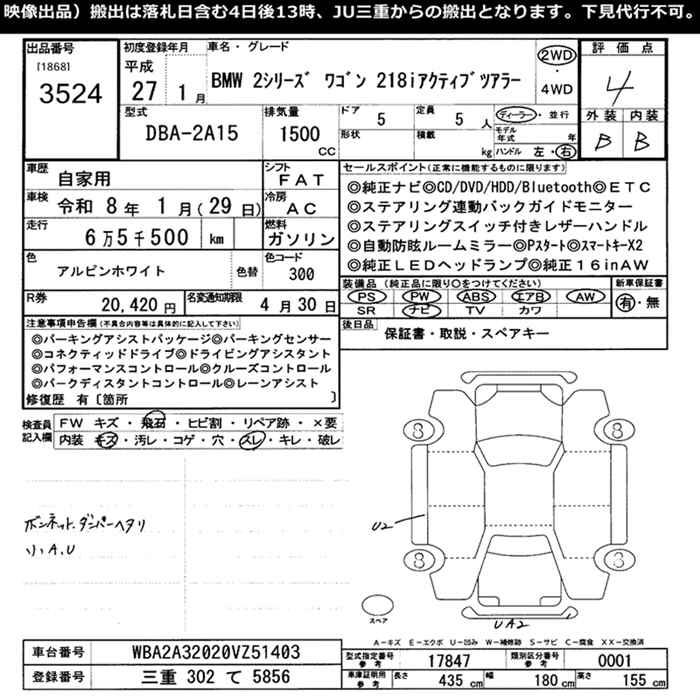 映像出品）搬出は落札日含む4日後13時、JU三重からの搬出となります。下見代行不可。
出品番号
[1868]
3524
初度登録年月
平成
27 1月
車名・グレード
BMW 2シリーズ ワゴン 218iアクティブツアラー
2WD
・
4WD
評価点
4
外装 内装
B B
型式
DBA-2A15
排気量
1500
CC
ドア
5
形状
定員
5人
積載
kg
ディーラー・並行
モデル年式 年
ハンドル 左・右
車歴
自家用
シフト
FAT
車検
令和 8年 1月(29日)
冷房
AC
走行
6万5千500 km
燃料
ガソリン
色
アルピンホワイト
色替
色コード
300
R券
20,420円
名変通知期限
4月30日
セールスポイント(正常に機能するものに限ります)
◎純正ナビ◎CD/DVD/HDD/Bluetooth◎ETC
◎ステアリング連動バックガイドモニター
◎ステアリングスイッチ付きレザーハンドル
◎自動防眩ルームミラー◎Pスタート◎スマートキーX2
◎純正LEDヘッドランプ◎純正16inAW
装備品(純正品に限り○をつけてください)
PS PW ABS エアB AW
SR ナビ TV カワ
新車保証書
有・無
後日品
保証書・取説・スペアキー
注意事項申告欄(不具合内容等は具体的に記入して下さい)
◎パーキングアシストパッケージ◎パーキングセンサー
◎コネクティッドドライブ◎ドライビングアシスタント
◎パフォーマンスコントロール◎クルーズコントロール
◎パークディスタントコントロール◎レーンアシスト
修復歴 有〔箇所 〕
検査員記入欄
FW キズ・飛石・ヒビ割・リペア跡・×要
内装 キズ・汚レ・コゲ・穴・スレ・キレ・破レ
ボンネット、ダンパーヘタリ
小、A.U
8 8
U2
8 8
スペア
UA2
A－キズ E－エクボ U－凹み W－補修跡 S－サビ C－腐食 XX－交換済
車台番号
WBA2A32020VZ51403
登録番号
三重 302 て 5856
型式指定番号
参考
17847
類別区分番号
参考
0001
車庫証明用
参考
長さ
435 cm
幅
180 cm
高さ
155 cm